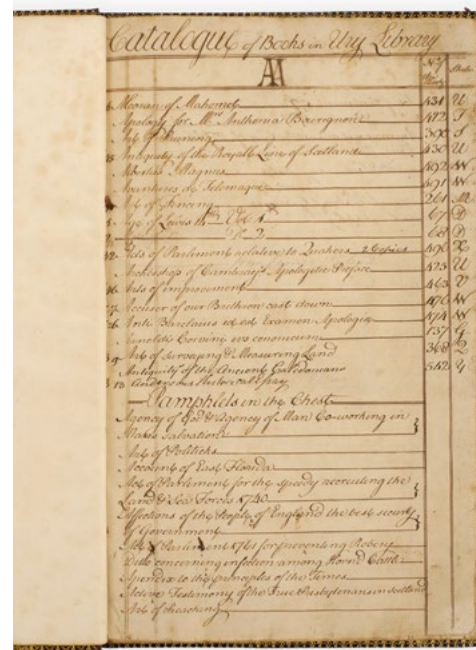 Catalogue of Books in Ury Library
A
No. Shelv
Alcoran of Mahomet 531 U
Apology for Mrs. Anthonia Bourignon 512 T
Art of Pruning 390 S
Antiquity of the Royall Line of Scotland 530 U
Albertus Magnus 592 W
Avantures de Telemaque 591 W
Art of Fencing 261 M
Age of Lewis 14th Vol. 1st 67 D
2 68 D
Acts of Parliment relative to Quakers 2 Copies 596 X
Archbishop of Cambray's Apologetic Preface 525 U
Arts of improvement 463 V
Accuser of our Brethren cast down 576 W
Anti Barclaius id est Examen Apologiæ 574 W
Arnoldi Corvini 137 G
Art of Surveying & Measuring Land 368 Q
Antiquity of the Ancient Caledonians 552 Y
Andersons Historical Essay
Pamphlets in the Chest
Agency of God & Agency of Man Co-working in
Mans Salvation
Art of Politicks
Account of East Florida
Act of Parliment for the speedy recruiting the
Land & Sea Forces 1740
Affections of the People of England the best security
of Government
Act of Parliment 1761 for preventing Robery
Ditto concerning infection among Horn'd Cattle
Apendix to the principles of the Times
Active Testimony of the True Presbyterians in Scotland
Art of Preaching